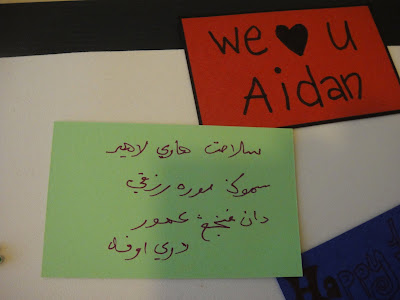 we ♥ u
Aidan
سلامت هاري لاهير
سموݢ موره رزقي
دان فنجڠ عمور
دري اوفه
Happy